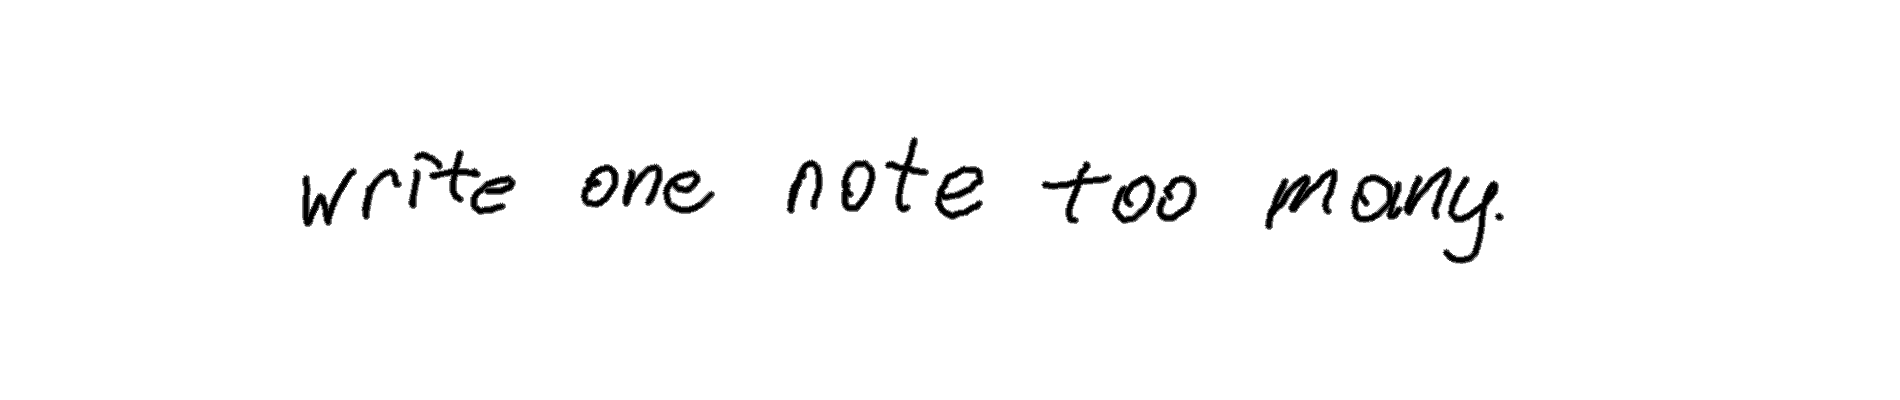 write one note too many.